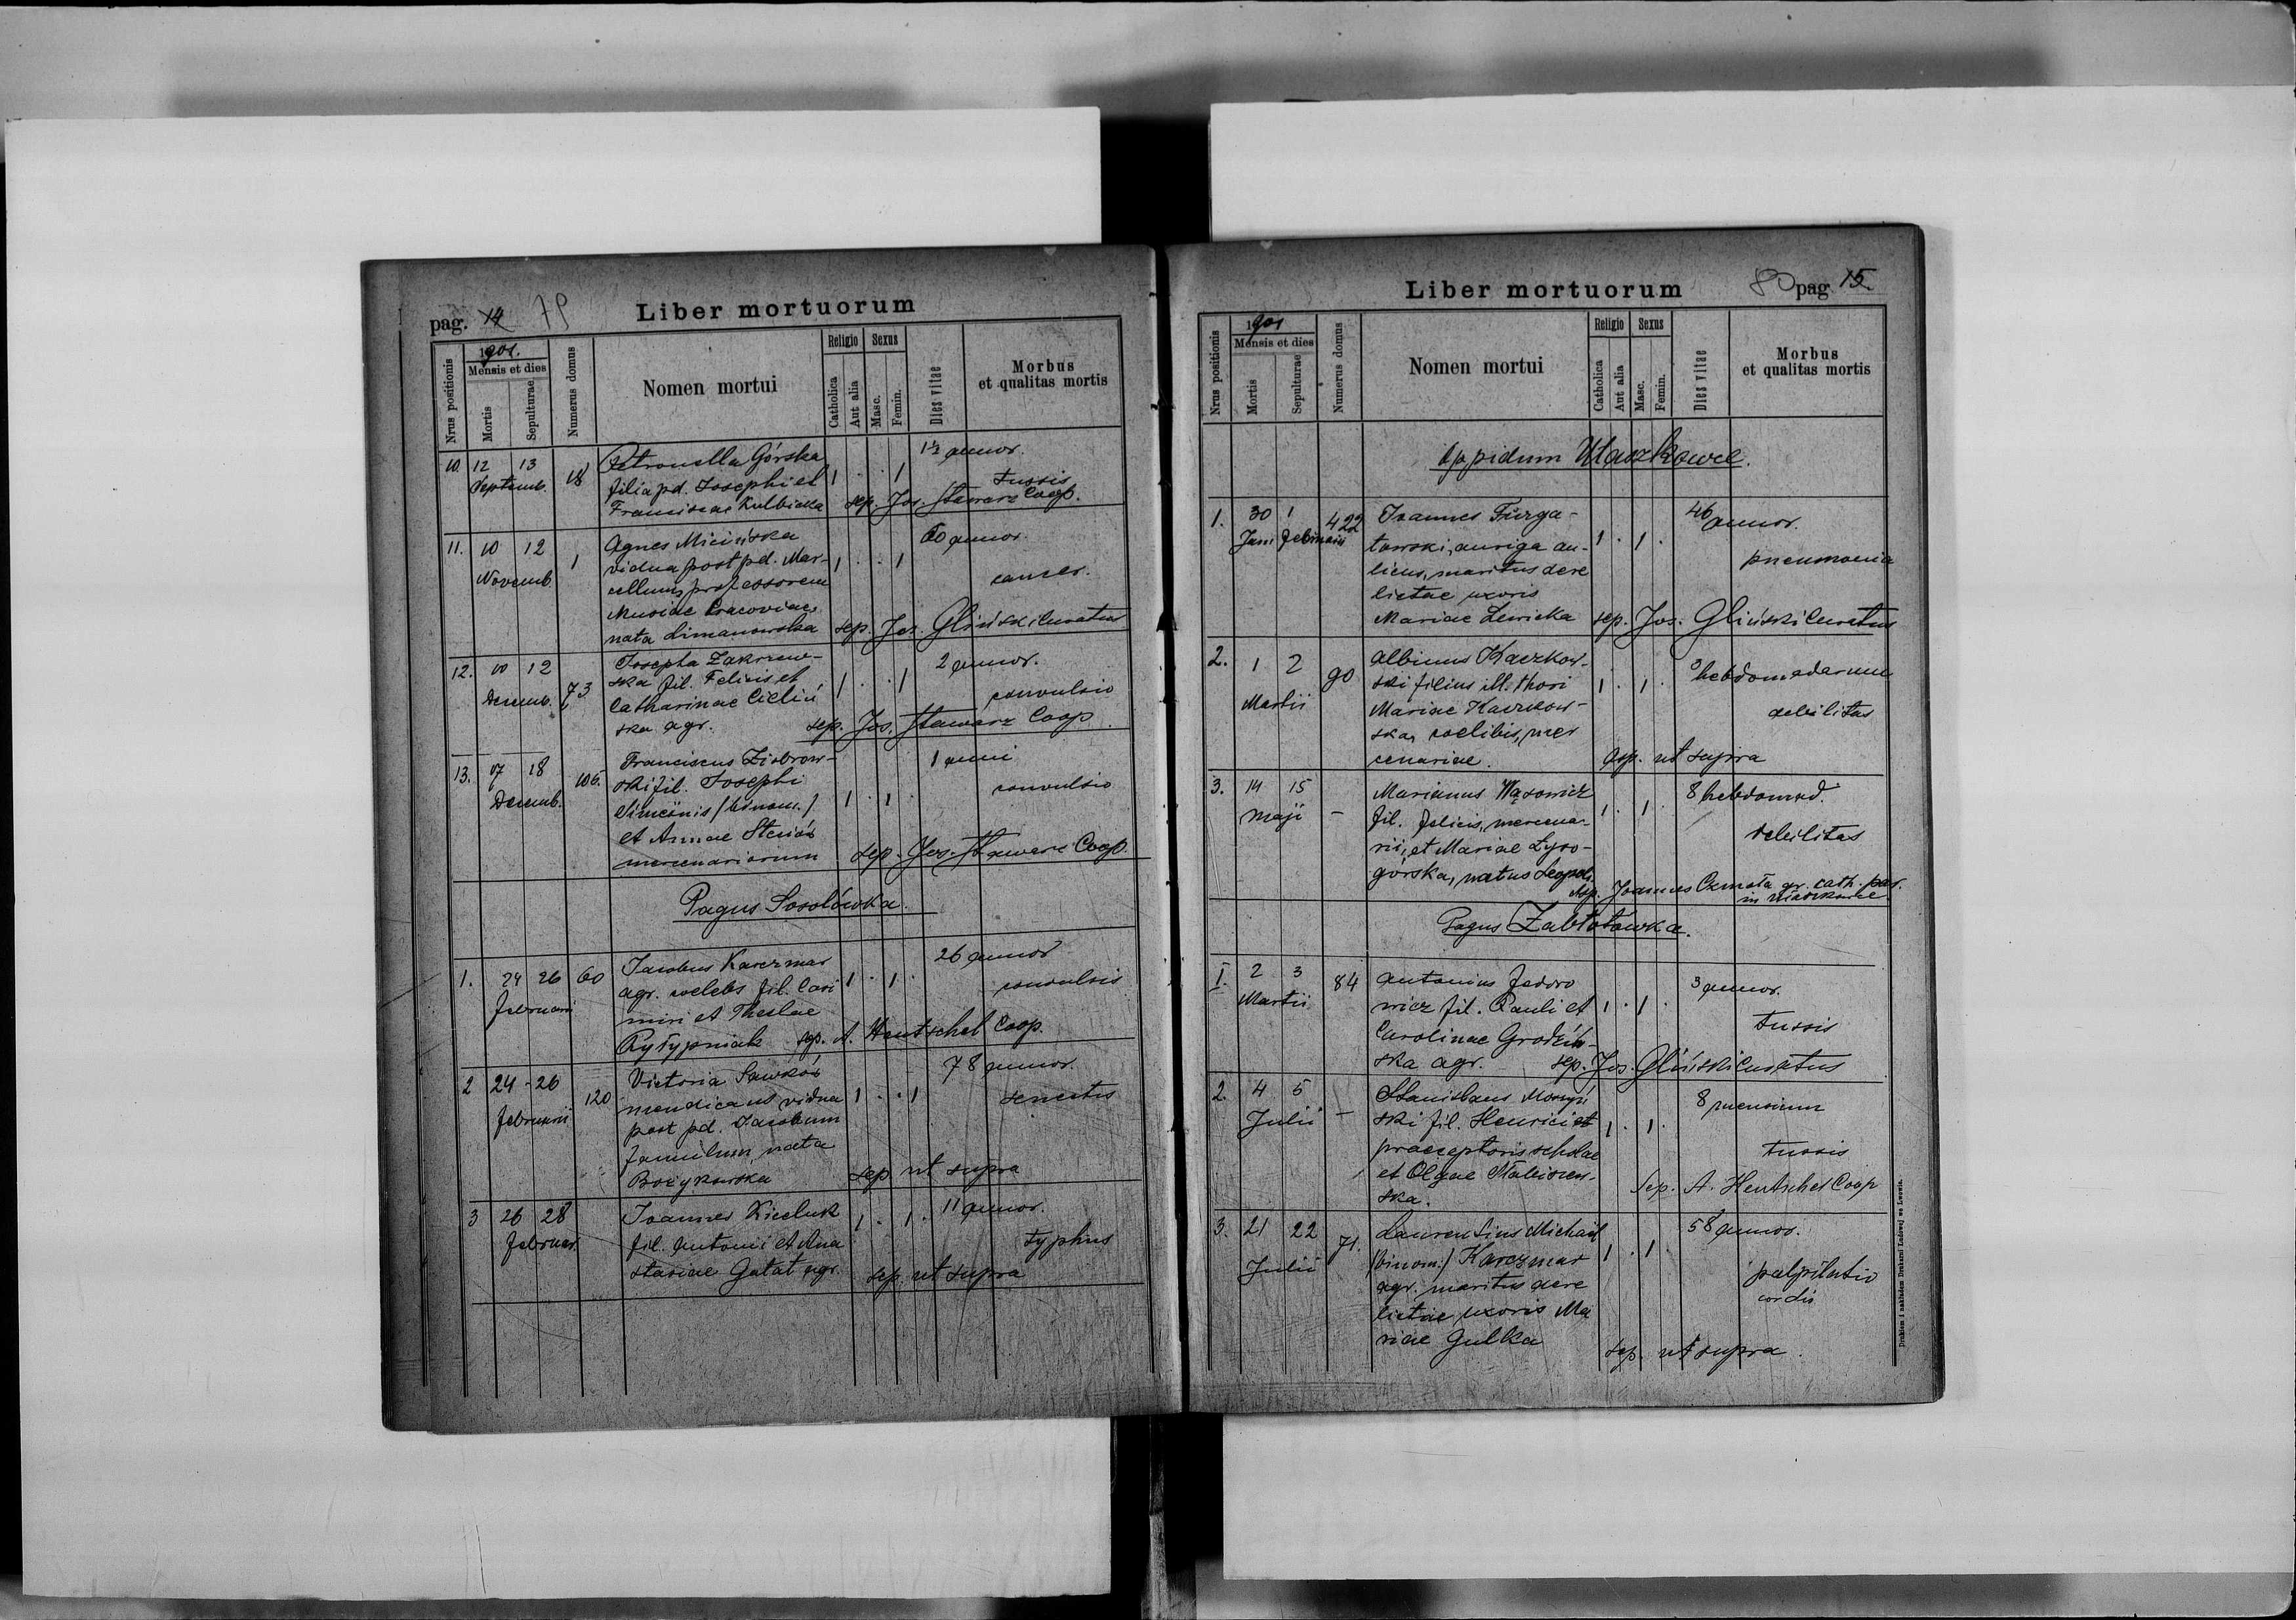 pag. 14 79
Liber mortuorum
Nrus positionis
1901.
Mensis et dies
Mortis
Sepulturae
Numerus domus
Nomen mortui
Religio
Catholica
Aut alia
Sexus
Masc.
Femin.
Dies vitae
Morbus
et qualitas mortis
10. 12 13 18 Petronella Górska 1 1 1½ annor.
Septemb. filia pd. Josephi et tussis
Franciscae Kulbicka sep. Jos. Stawarz Coop.
11. 10 12 1 Agnes Micińska 1 1 60 annor.
Novemb. vidua post pd. Mar-
cellum, professorem cancer.
Musicae Cracoviae,
nata Limanowska sep. Jos. Gliński Curatus
12. 10 12 73 Josepha Zakrzew- 1 1 2 annor.
Decemb. ska fil. Felicis et
Catharinae Cieliń convulsio
ska agr. sep. Jos. Stawarz Coop.
13. 17 18 106. Franciscus Ziobrow- 1 1 1 anni
Decemb. ski fil. Josephi convulsio
Simeonis (binom.)
et Annae
mercenariorum sep. Jos. Stawarz Coop.
Pagus Sosolówka.
1. 24 26 60 Jacobus Karczmar 1 1 26 annor
Februarii agr. coelebs fil. Casi convulsis
miri et Theclae
sep. A. Hentschel Coop.
2 24 - 26 120 Victoria Sawków 1 1 78 annor.
Februarii mendicans vidua senectus
post pd. Jacobum
famulum, nata
Bożykowska sep ut supra
3 26 28 Joannes Kieeluk 1 1 11 annor.
Februar. fil. Antonii et Ana typhus
stasiae Gatat agr. sep. ut supra
Liber mortuorum
80 pag. 15.
Nrus positionis
1901
Mensis et dies
Mortis
Sepulturae
Numerus domus
Nomen mortui
Religio
Catholica
Aut alia
Sexus
Masc.
Femin.
Dies vitae
Morbus
et qualitas mortis
Oppidum Ułaszkowce.
1. 30 1 422 Joannes Furga- 1 1 46 annor.
Jani Februarii towski, auriga au-
licus, maritus dere pneumonia
lictae uxoris
Mariae Lewicka sep. Jos. Gliński Curatus
2. 1 2 90 Albinus Kaczkow- 1 1 3 hebdomadarum
Martii ski filius ill. thori
Mariae Kaczkow- debilitas
ska, coelibis, mer
cenariae. sep. ut supra
3. 14 15 - Marianus Wąsowicz 1 1 8 hebdomad.
Maji fil. Felicis, mercena-
rii, et Mariae Łyso- debilitas
górska, natus Leopoli.
sep. Joannes gr. cath. par.
in Ułaszkowce.
Pagus Zabłotówka.
I. 2 3 84 Antonius Fedoro 1 1 3 annor.
Martii wicz fil. Pauli et
Carolinae Grodziń- tussis
ska agr. sep. Jos. Gliński Curatus
2. 4 5 - Stanislaus 1 1 8 mensium
Julii ski fil. Henrici et
praeceptoris scholae tussis
et Olgae
ska. sep. A. Hentschel Coop
3. 21 22 71. Laurentius Michael 1 1 58 annor.
Julii (binom.) Karczmar
agr. maritus dere palpitatio
lictae uxoris Ma cordis
riae Gulka sep. ut supra.
Drukiem i nakładem Drukarni Ludowej we Lwowie.